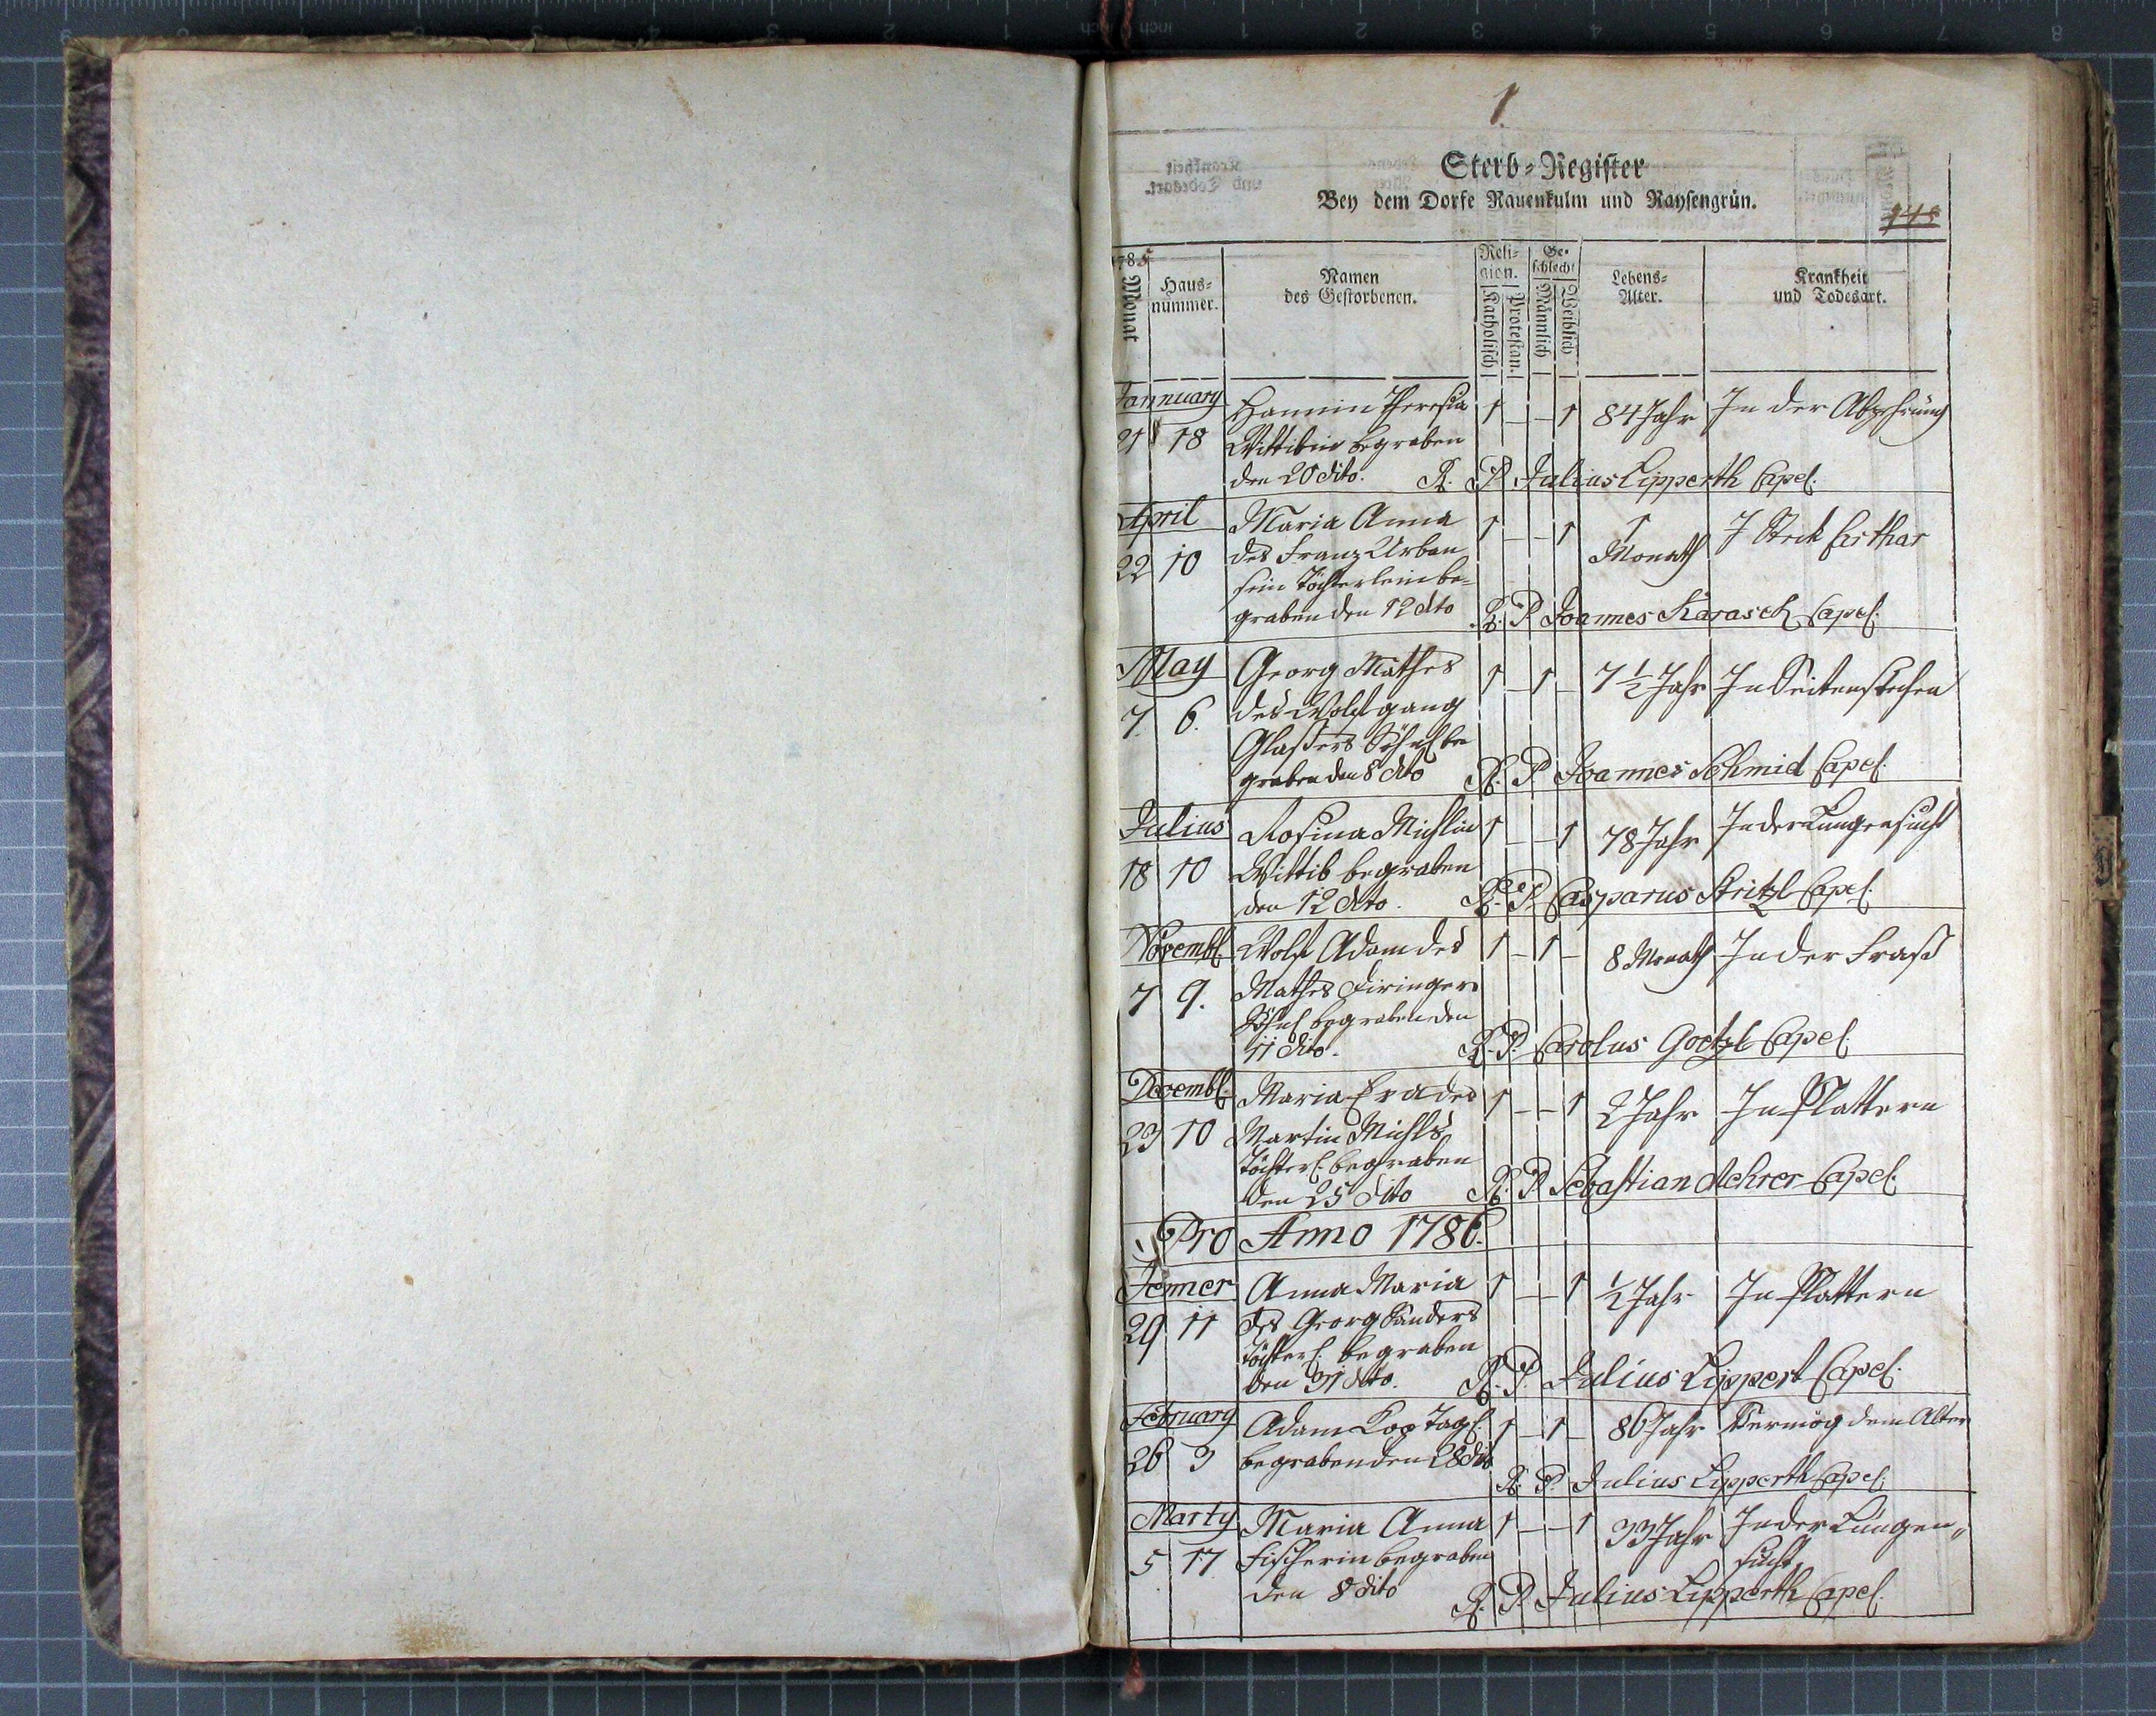 1.
Sterb-Register
Bey dem Dorfe Rauenkulm und Raysengrün.
145
1785
Monat
Haus-
nummer.
Namen
des Gestorbenen.
Reli-
gion.
Katholisch
Protestan.
Ge-
schlecht
Männlich
Weiblich
Lebens-
Alter.
Krankheit
und Todesart.
Jannuary
21 18 Theresia 1 — — 1 84 Jahr In der Abzehrung
Wittibin begraben
den 20 dito. R. P. Julius Lipperth Capel.
April
22 10 Maria Anna 1 — — 1 1 Monath
des Franz Urban
sein Töchterlein be-
graben den 12 dto R. P. Joannes Karasek Capel.
May
7. 6. Georg Mathes 1 — 1 — 7 ½ Jahr In Seitenstechen
des Wolfgang
Glaßers Söhnl be
graben den 8 dto R. P. Joannes Schmid Capel.
Julius
18 10 Rosina Michlin 1 — — 1 78 Jahr In der Lungensucht
Wittib begraben
den 12 dto. R. P. Casparus Stritzl Capel.
Novembl.
7 9. Wolf Adam des 1 — 1 — 8 Monath In der Fraß
Mathes Firingers
Söhnl begraben den
11 dito. R. P. Carolus Goetzl Capel.
Decembl.
23 10 Maria Eva des 1 — — 1 2 Jahr In Plattern
Martin Michls
Töchterl. begraben
den 25 dito R. P. Sebastian Capel.
Pro Anno 1786.
Jenner
29 11 Anna Maria 1 — — 1 ½ Jahr In Plattern
des Georg
Töchterl. begraben
den 31 dto. R. P. Julius Lippert Capel.
February
26 3 Adam Tagl. 1 — 1 — 86 Jahr Vermög dem Alter
begraben den 28 dito
R. P. Julius Lipperth Capel.
Marty
5 17 Maria Anna 1 — — 1 33 Jahr In der Lungen„
Fischerin begraben sucht
den 8 dito R. P. Julius Lipperth Capel.